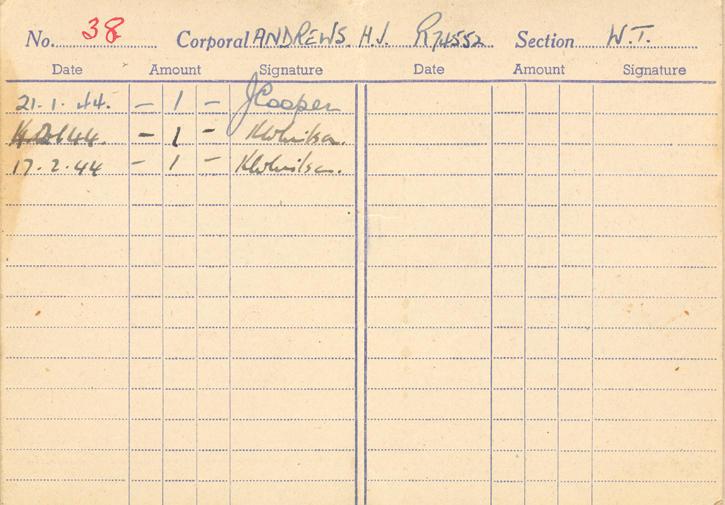 No. 38 Corporal ANDREWS. H.J. R74552 Section W.T.
Date Amount Signature Date Amount Signature
21.1.44. - 1 - J Cooper
44. - 1 -
17.2.44 - 1 -